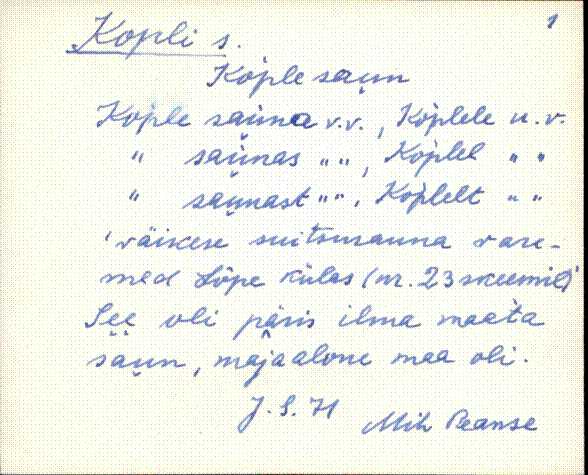 1
Kopli s.
Kople saun
Kople sauna v.v., Koplele u.v.
" saunas " ", Koplel " "
" saunast " ", Koplelt " "
'väikese suitsusauna vare-
med Lõpe külas (nr. 23 skeemil)
See oli päris ilma maata
saun, majaalone maa oli.
J. S. 71 Mih Peanse